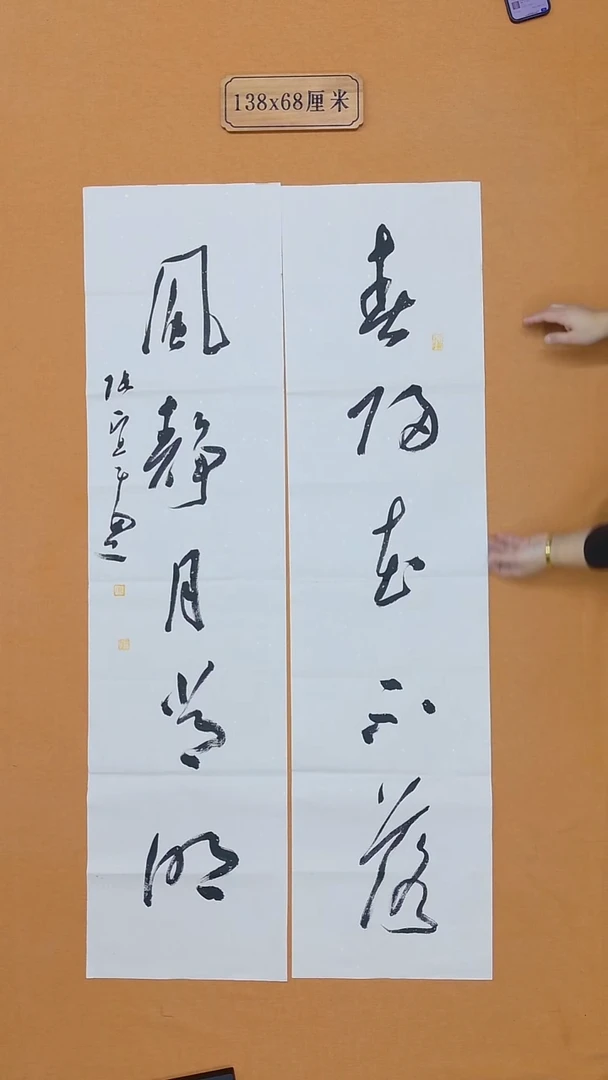 138x68厘米
春归花不落
風静月常明